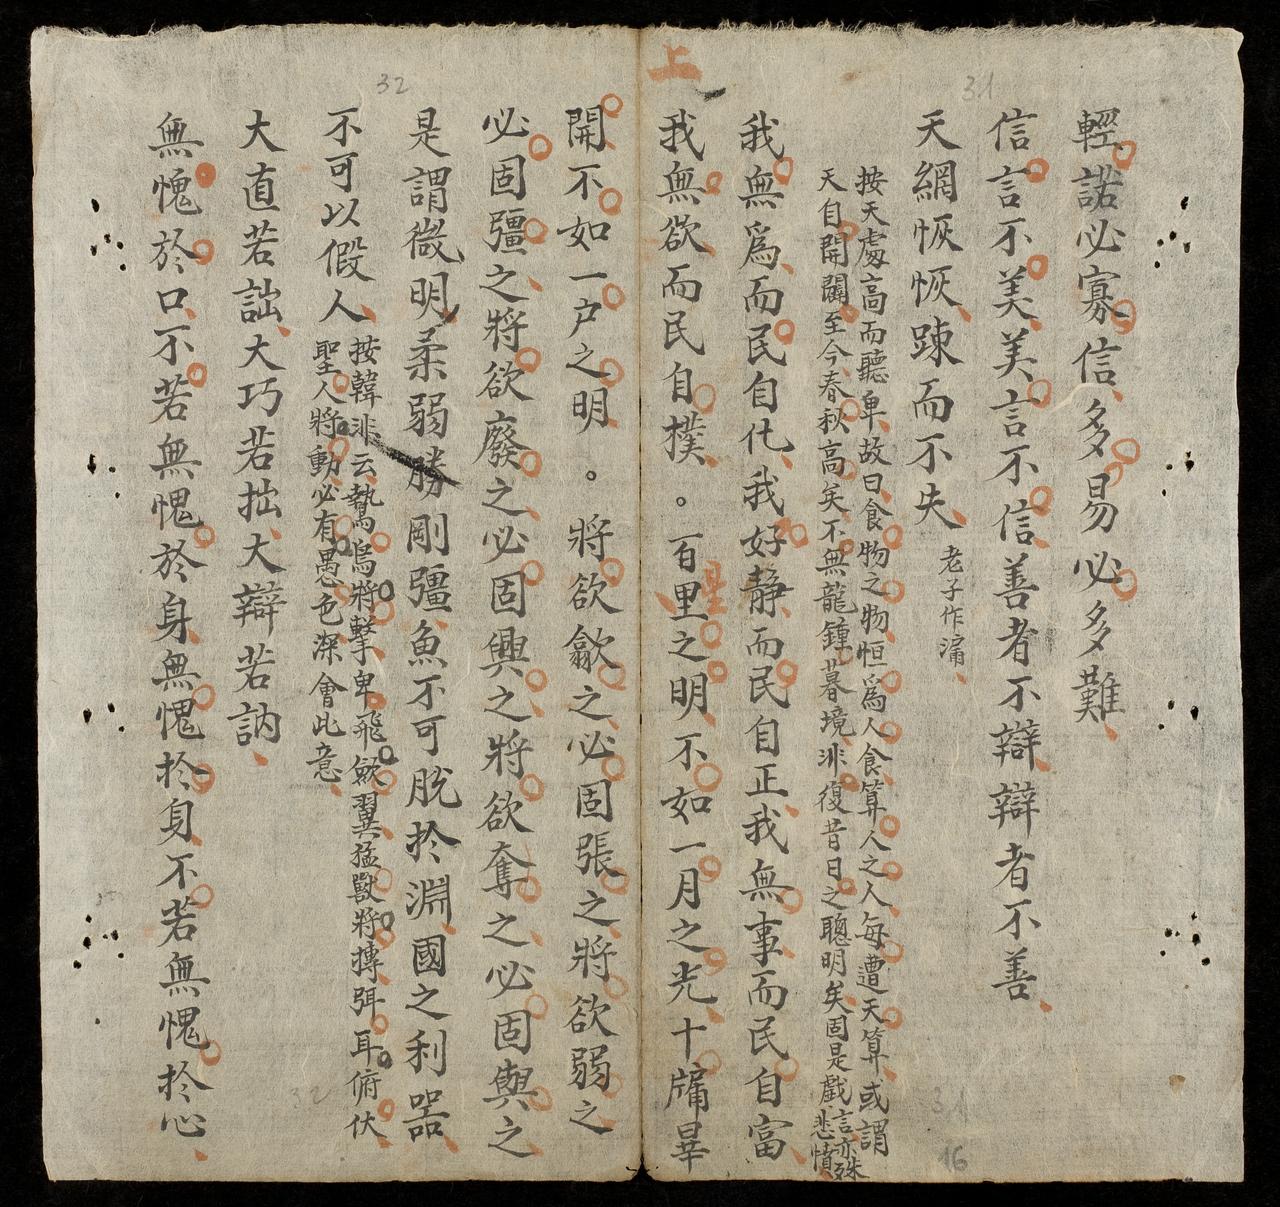 31
輕諾必寡信多易必多難
信言不美美言不信善者不辯辯者不善
天網恢恢踈而不失 老子作漏
按天處高而聽卑故曰食物之物恒爲人食算人之人每遭天算或謂
天自開闢至今春秋高矣不無龍鍾暮境非復昔日之聰明矣固是戲言亦殊
悲憤
我無爲而民自化我好静而民自正我無事而民自富
上
我無欲而民自撲。百里之明不如一月之光十牖畢
星
32
開不如一户之明。將欲歙之必固張之將欲弱之
必固彊之將欲廢之必固興之將欲奪之必固與之
是謂微明柔弱勝剛彊魚不可脱於淵國之利器
不可以假人
按韓非云鷙鳥將擊卑飛歛翼猛獸將搏弭耳俯伏
聖人將動必有愚色深會此意
大直若詘大巧若拙大辯若訥
無愧於口不若無愧於身無愧於身不若無愧於心
32
31
16